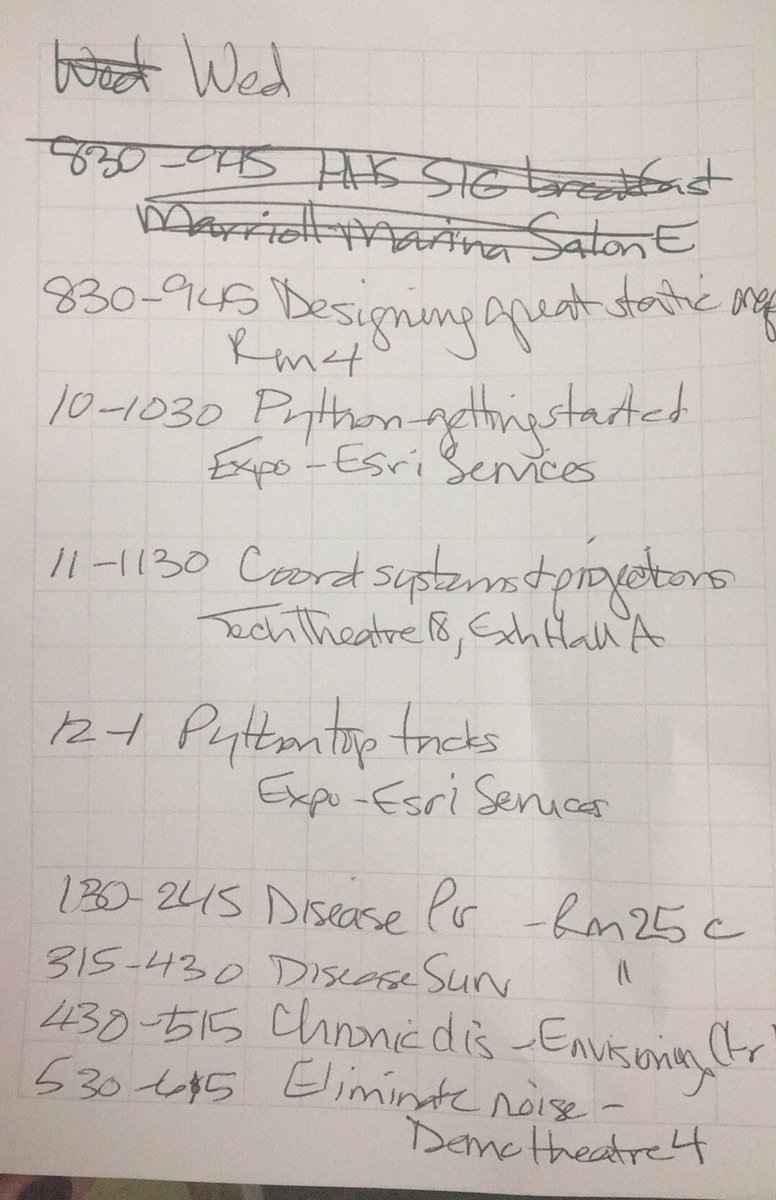 Wed Wed
830-945 HHS SIG breakfast
Marriott Marina Salon E
830-945 Designing great static
Rm 4
10-1030 Python-getting started
Expo - Esri Services
11-1130 Coord systems + projections
Tech Theatre 18, Exh Hall A
12-1 Python top tricks
Expo - Esri Services
130-245 Disease Pr - Rm 25 c
315-430 Disease Surv "
430-515 Chronic dis - Envisioning Ctr
530-615 Eliminate noise -
Demo theatre 4